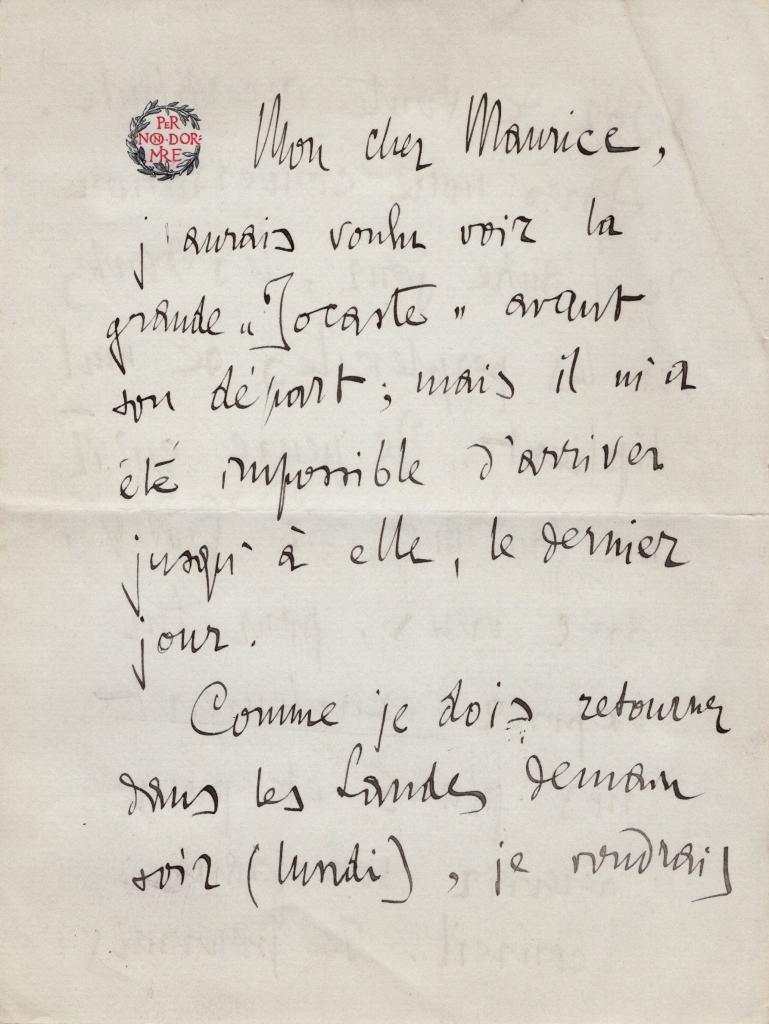 PER
NON·DOR=
MIRE
Mon cher Maurice,
j'aurais voulu voir la
grande „Jocaste" avant
son départ; mais il m'a
été impossible d'arriver
jusqu'à elle, le dernier
jour.
Comme je dois retourner
dans les Landes demain
soir (lundi), je voudrais